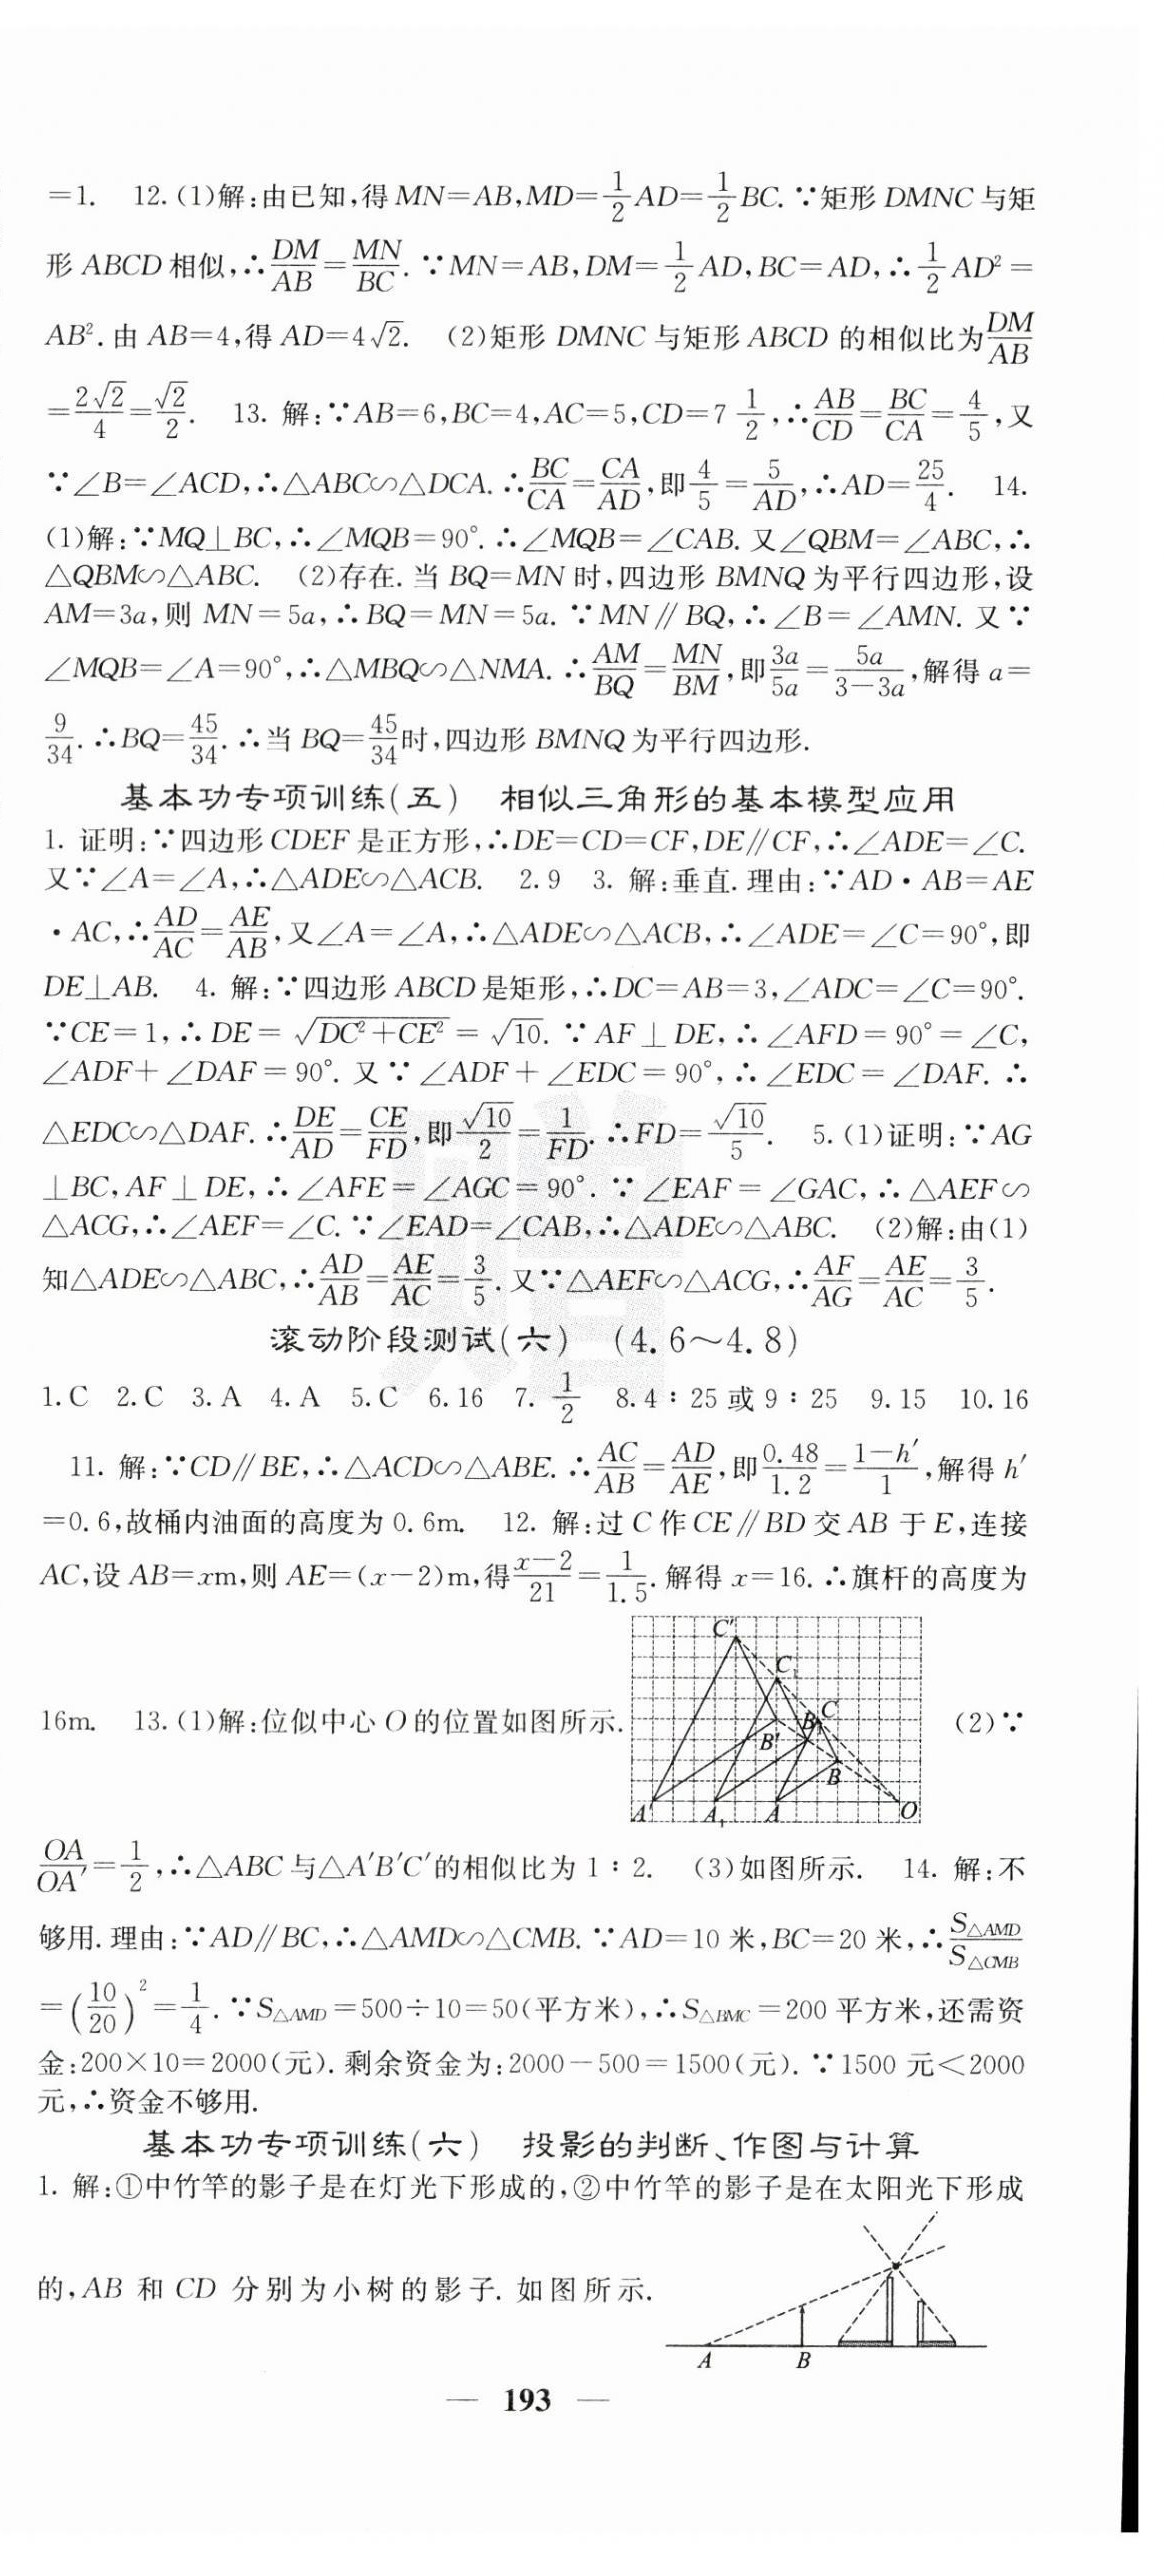 =1. 12.(1)解:由已知,得MN=AB,MD=1/2AD=1/2BC.∵矩形DMNC与矩
形ABCD相似,∴DM/AB=MN/BC.∵MN=AB,DM=1/2AD,BC=AD,∴1/2AD²=
AB².由AB=4,得AD=4√2. (2)矩形DMNC与矩形ABCD的相似比为DM/AB
=2√2/4=√2/2. 13.解:∵AB=6,BC=4,AC=5,CD=7 1/2,∴AB/CD=BC/CA=4/5,又
∵∠B=∠ACD,∴△ABC∽△DCA.∴BC/CA=CA/AD,即4/5=5/AD,∴AD=25/4. 14.
(1)解:∵MQ⊥BC,∴∠MQB=90°.∴∠MQB=∠CAB.又∠QBM=∠ABC,∴
△QBM∽△ABC. (2)存在.当BQ=MN时,四边形BMNQ为平行四边形,设
AM=3a,则MN=5a,∴BQ=MN=5a.∵MN∥BQ,∴∠B=∠AMN.又∵
∠MQB=∠A=90°,∴△MBQ∽△NMA.∴AM/BQ=MN/BM,即3a/5a=5a/(3-3a),解得a=
9/34.∴BQ=45/34.∴当BQ=45/34时,四边形BMNQ为平行四边形.
基本功专项训练(五) 相似三角形的基本模型应用
1.证明:∵四边形CDEF是正方形,∴DE=CD=CF,DE∥CF,∴∠ADE=∠C.
又∵∠A=∠A,∴△ADE∽△ACB. 2.9 3.解:垂直.理由:∵AD·AB=AE
·AC,∴AD/AC=AE/AB,又∠A=∠A,∴△ADE∽△ACB,∴∠ADE=∠C=90°,即
DE⊥AB. 4.解:∵四边形ABCD是矩形,∴DC=AB=3,∠ADC=∠C=90°.
∵CE=1,∴DE=√(DC²+CE²)=√10.∵AF⊥DE,∴∠AFD=90°=∠C,
∠ADF+∠DAF=90°.又∵∠ADF+∠EDC=90°,∴∠EDC=∠DAF.∴
△EDC∽△DAF.∴DE/AD=CE/FD,即√10/2=1/FD.∴FD=√10/5. 5.(1)证明:∵AG
⊥BC,AF⊥DE,∴∠AFE=∠AGC=90°.∵∠EAF=∠GAC,∴△AEF∽
△ACG,∴∠AEF=∠C.∵∠EAD=∠CAB,∴△ADE∽△ABC. (2)解:由(1)
知△ADE∽△ABC,∴AD/AB=AE/AC=3/5.又∵△AEF∽△ACG,∴AF/AG=AE/AC=3/5.
滚动阶段测试(六) (4.6～4.8)
1.C 2.C 3.A 4.A 5.C 6.16 7.1/2 8.4∶25或9∶25 9.15 10.16
11.解:∵CD∥BE,∴△ACD∽△ABE.∴AC/AB=AD/AE,即0.48/1.2=(1-h′)/1,解得h′
=0.6,故桶内油面的高度为0.6m. 12.解:过C作CE∥BD交AB于E,连接
AC,设AB=xm,则AE=(x-2)m,得(x-2)/21=1/1.5.解得x=16.∴旗杆的高度为
16m. 13.(1)解:位似中心O的位置如图所示. (2)∵
C′
C₁
C
B₁
B′
B
A′ A₁ A O
OA/OA′=1/2,∴△ABC与△A′B′C′的相似比为1∶2. (3)如图所示. 14.解:不
够用.理由:∵AD∥BC,∴△AMD∽△CMB.∵AD=10米,BC=20米,∴S△AMD/S△CMB
=(10/20)²=1/4.∵S△AMD=500÷10=50(平方米),∴S△BMC=200平方米,还需资
金:200×10=2000(元).剩余资金为:2000-500=1500(元).∵1500元<2000
元,∴资金不够用.
基本功专项训练(六) 投影的判断、作图与计算
1.解:①中竹竿的影子是在灯光下形成的,②中竹竿的影子是在太阳光下形成
的,AB和CD分别为小树的影子.如图所示.
A B
— 193 —
赠